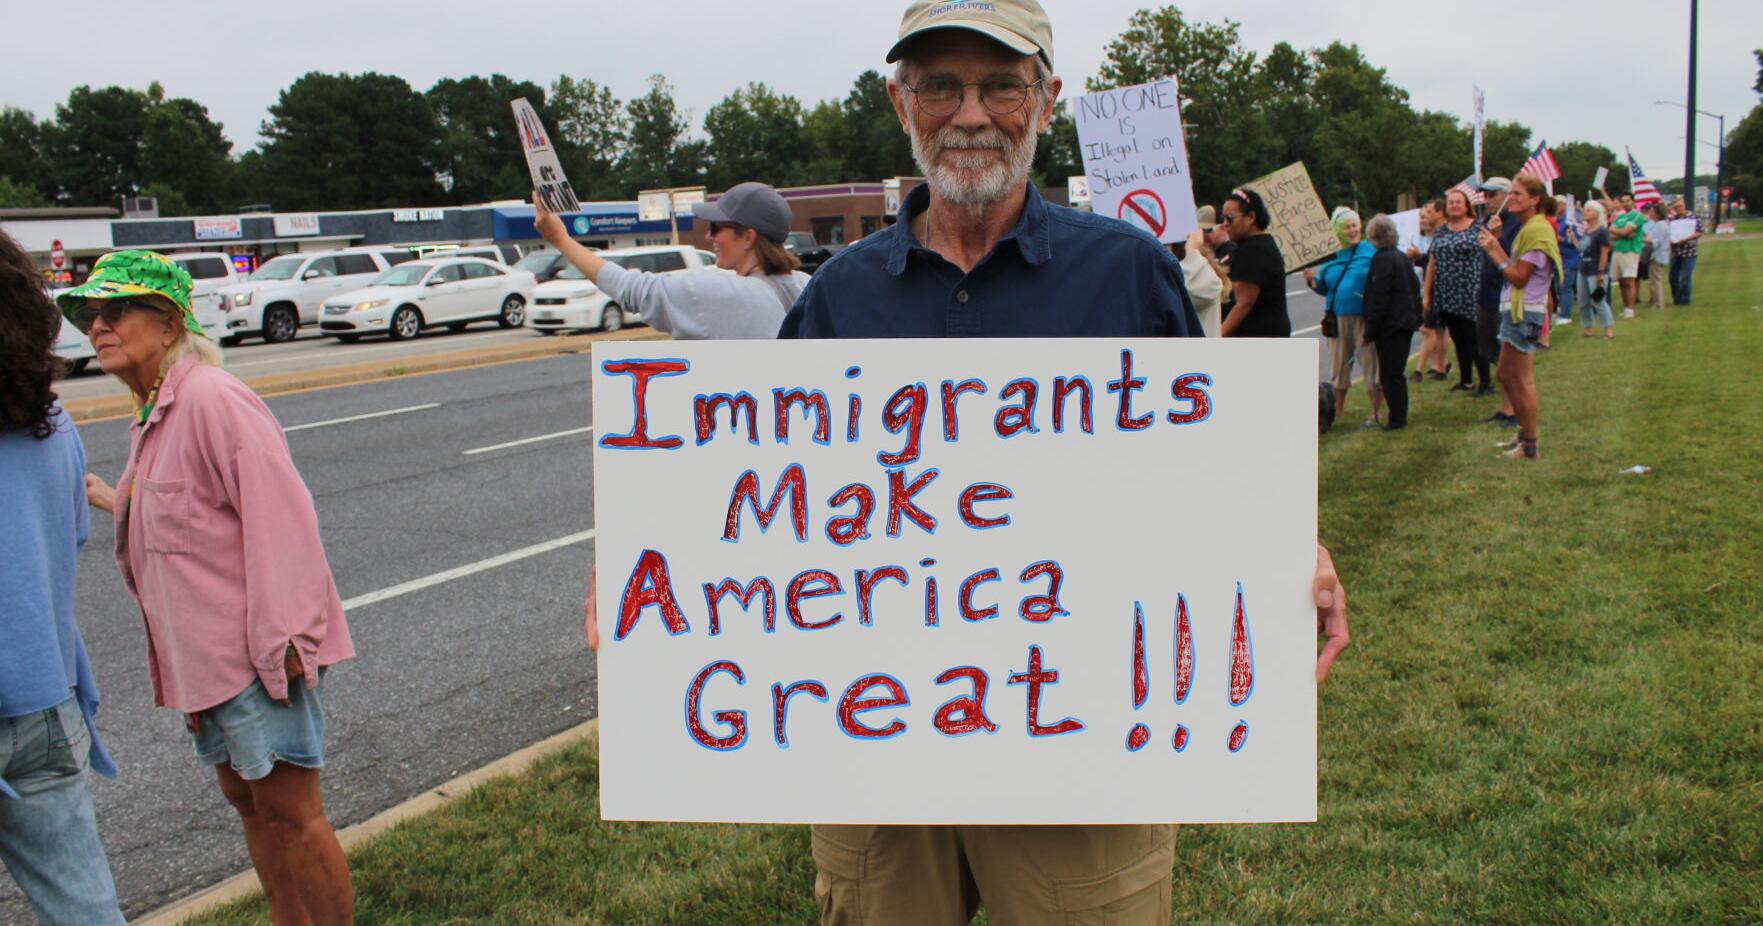 SHORERIVERS
NO ONE
IS
Illegal on
Stolen Land
ALL
are
Justice
Peace
Justice
Peace
NAILS
SMOKE NATION
Comfort Keepers
Immigrants
Make
America
Great !!!